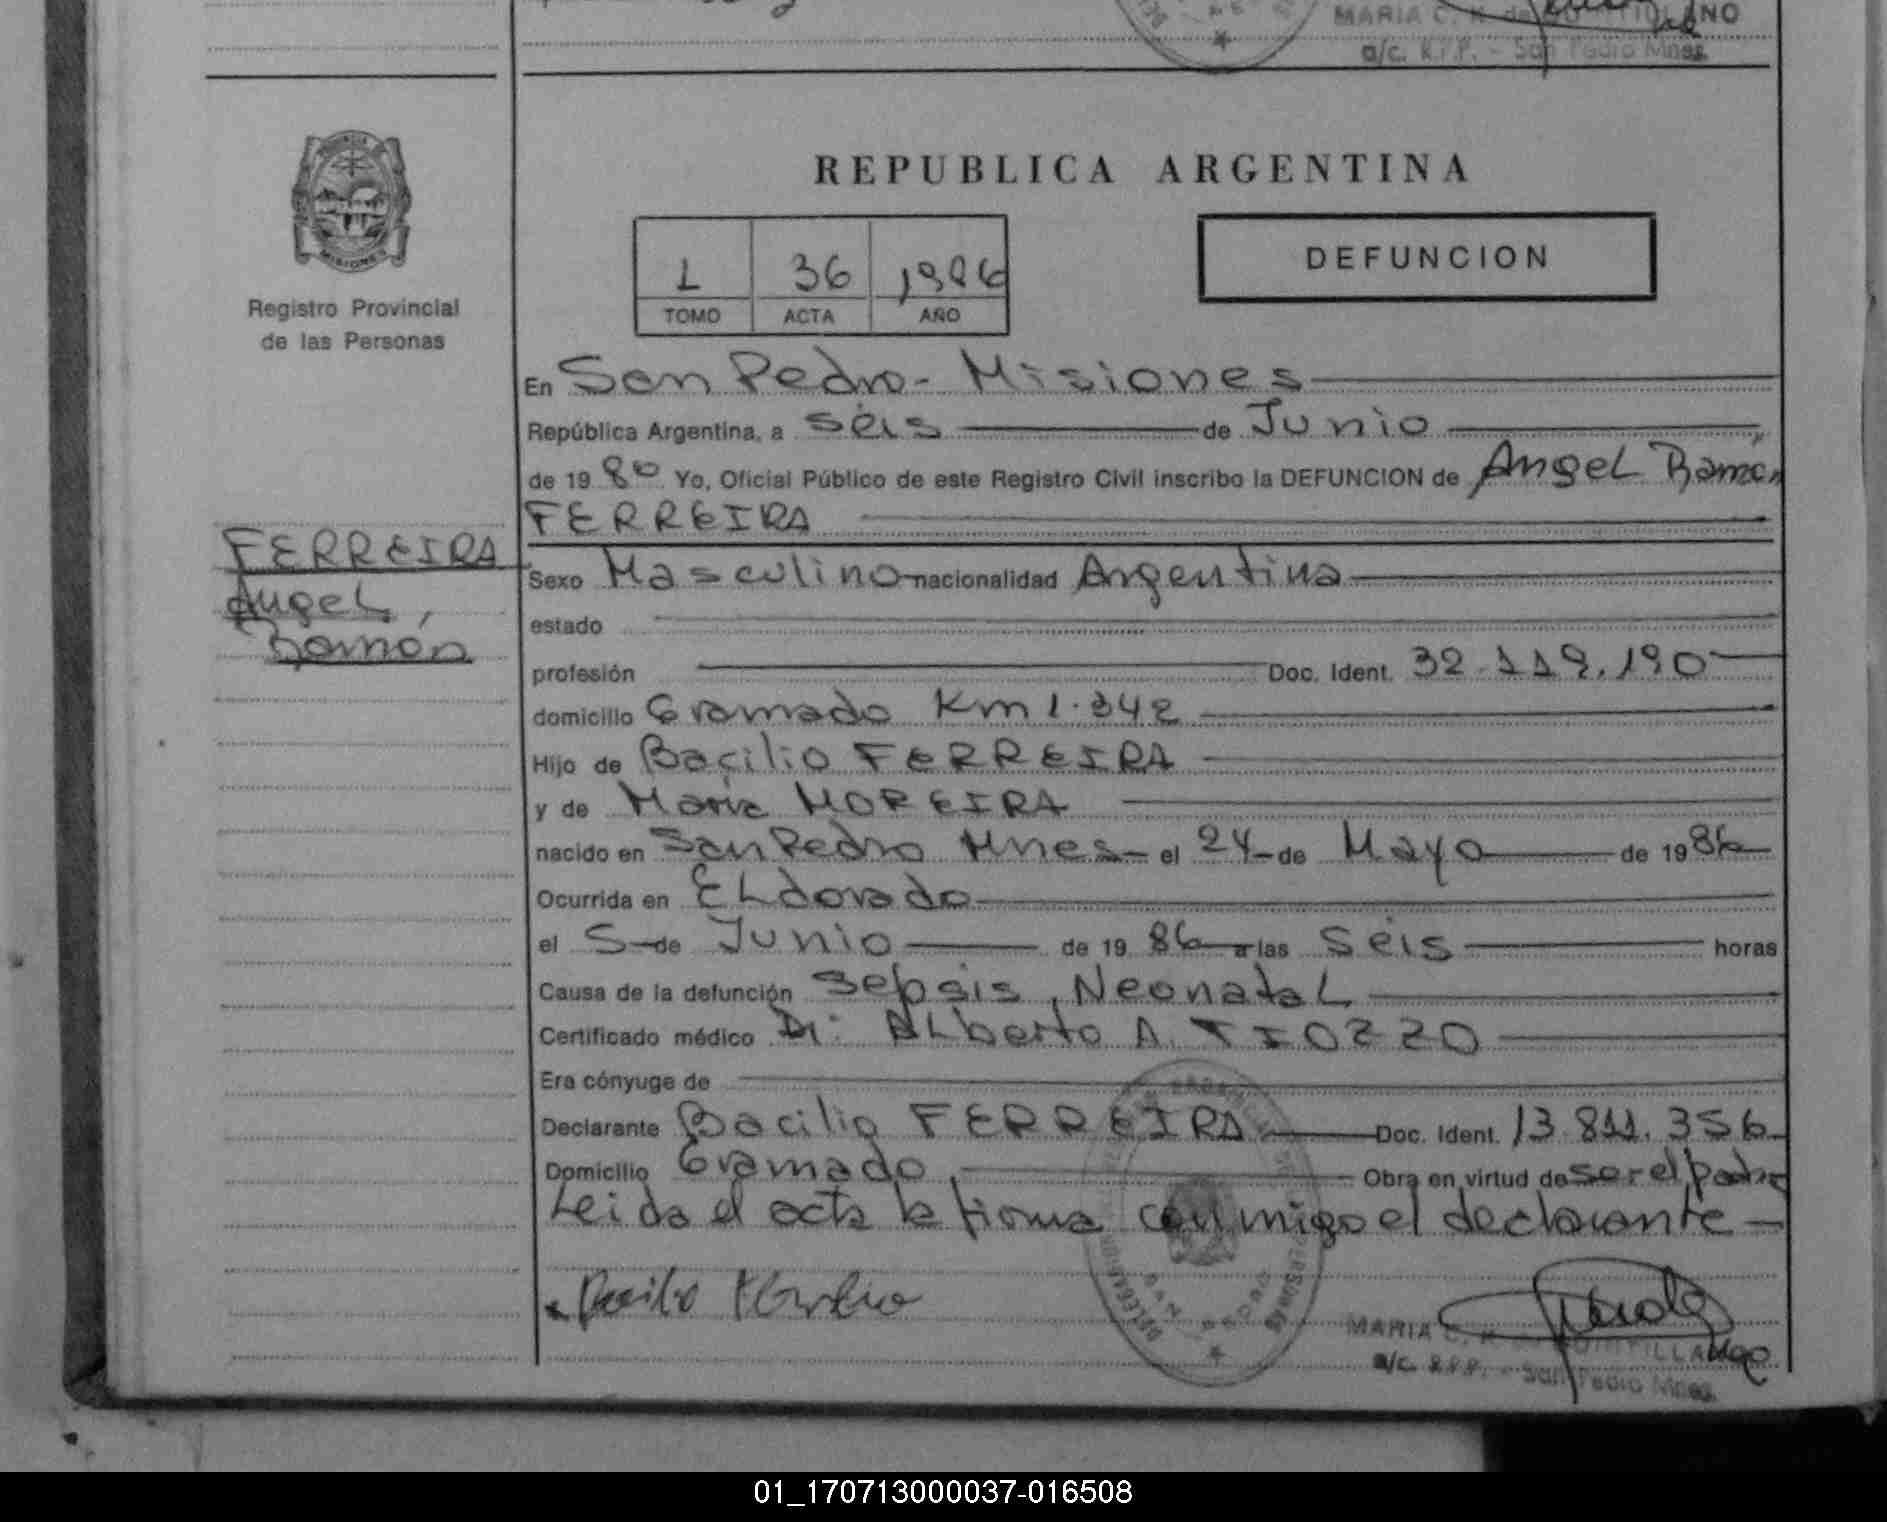 MARIA C. K. de QUINTILLANO
a/c. R.P.P. - San Pedro Mnes.
PROVINCIA
MISIONES
Registro Provincial
de las Personas
REPUBLICA ARGENTINA
1 36 1986
TOMO ACTA AÑO
DEFUNCION
En San Pedro - Misiones
República Argentina, a seis de Junio
de 19 86 Yo, Oficial Público de este Registro Civil inscribo la DEFUNCION de Angel Ramón
FERREIRA
FERREIRA
Angel,
Ramón
Sexo Masculino nacionalidad Argentina
estado
profesión Doc. Ident. 32.119.190
domicilio Gramado Km 1.342
Hijo de Bacilio FERREIRA
y de María MOREIRA
nacido en San Pedro Mnes - el 24 - de Mayo de 19 86
Ocurrida en ELdorado
el 5 - de Junio de 19 86 a las seis horas
Causa de la defunción Sepsis, NeonataL
Certificado médico Dr: ALberto A. TIOZZO
Era cónyuge de
Declarante Bacilio FERREIRA Doc. Ident. 13.811.356
Domicilio Gramado Obra en virtud de ser el padre
Leida el acta la firma conmigo el declarante -
SAN PEDRO
MARIA C. K. de QUINTILLANO
a/c. R.P.P. - San Pedro Mnes.
01_170713000037-016508